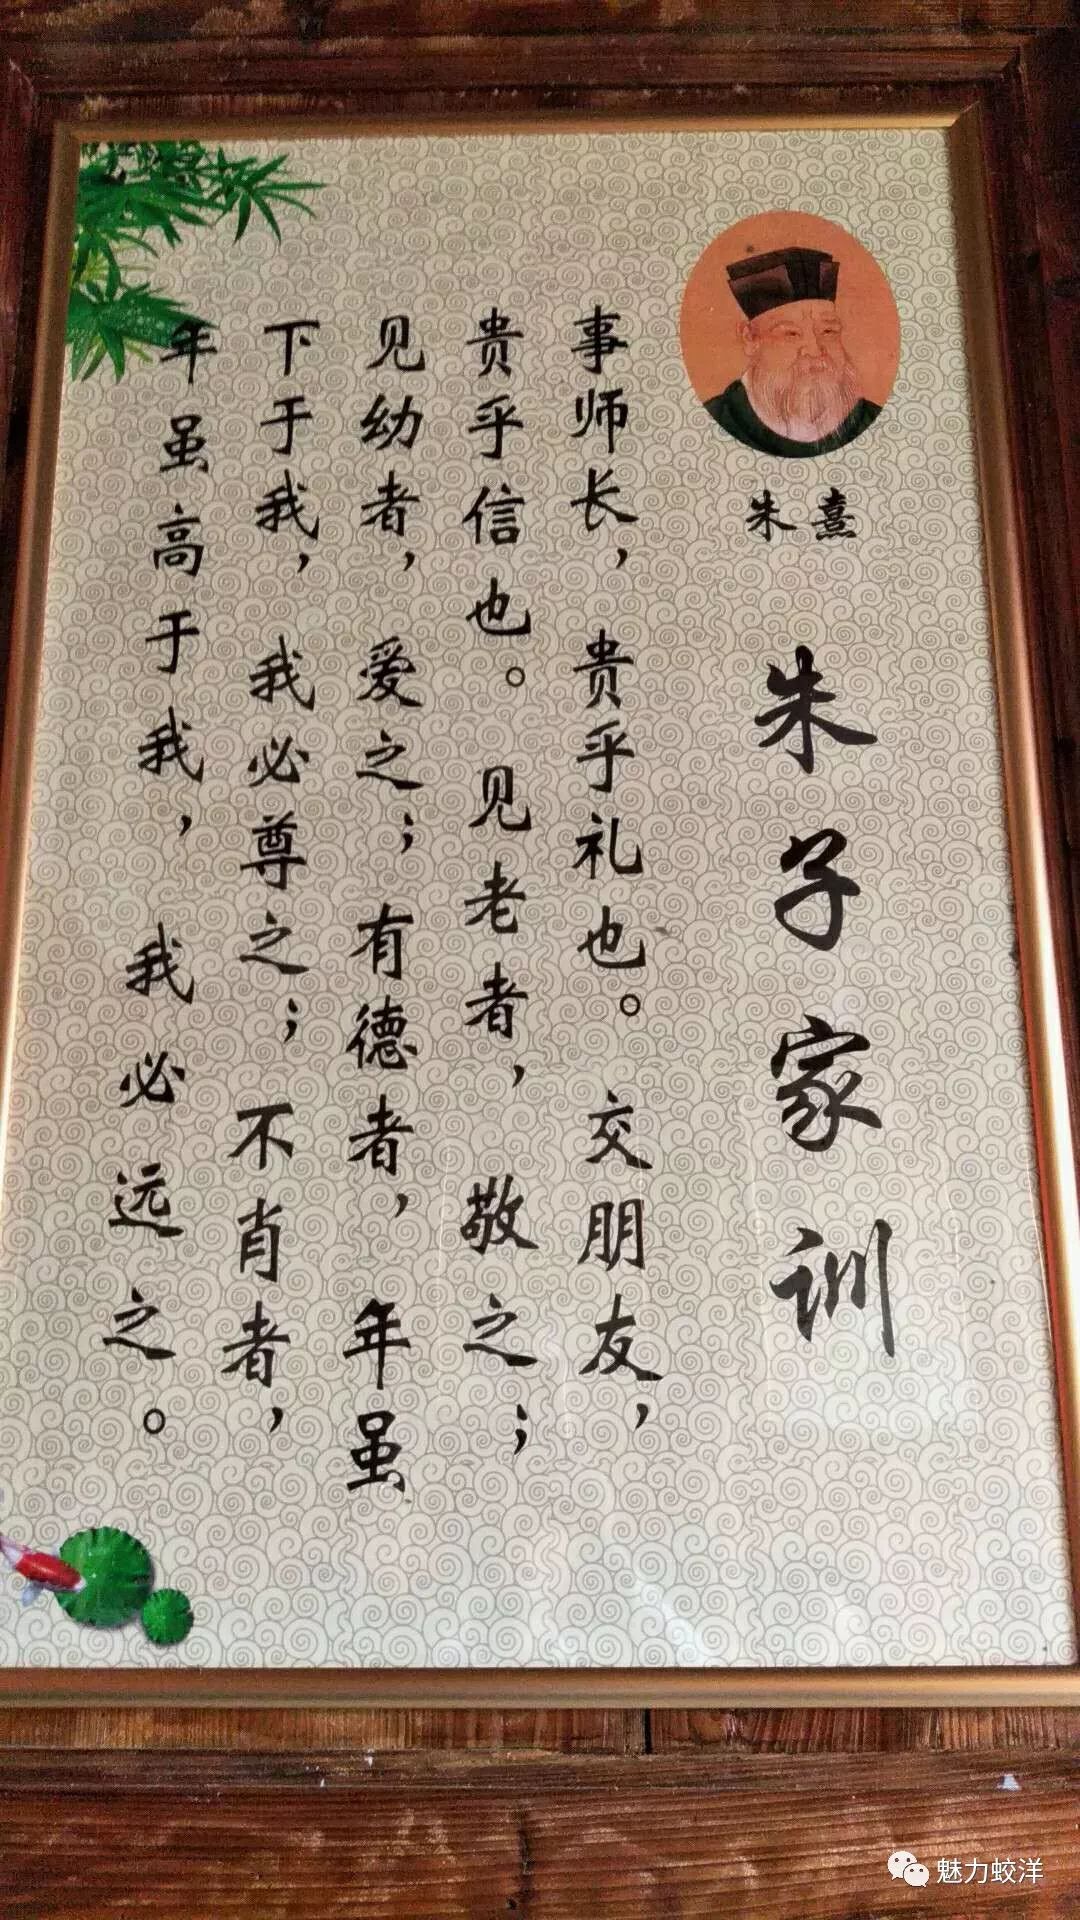 朱熹
朱子家训
事师长，贵乎礼也。交朋友，
贵乎信也。见老者，敬之；
见幼者，爱之；有德者，年虽
下于我，我必尊之；不肖者，
年虽高于我，我必远之。
魅力蛟洋